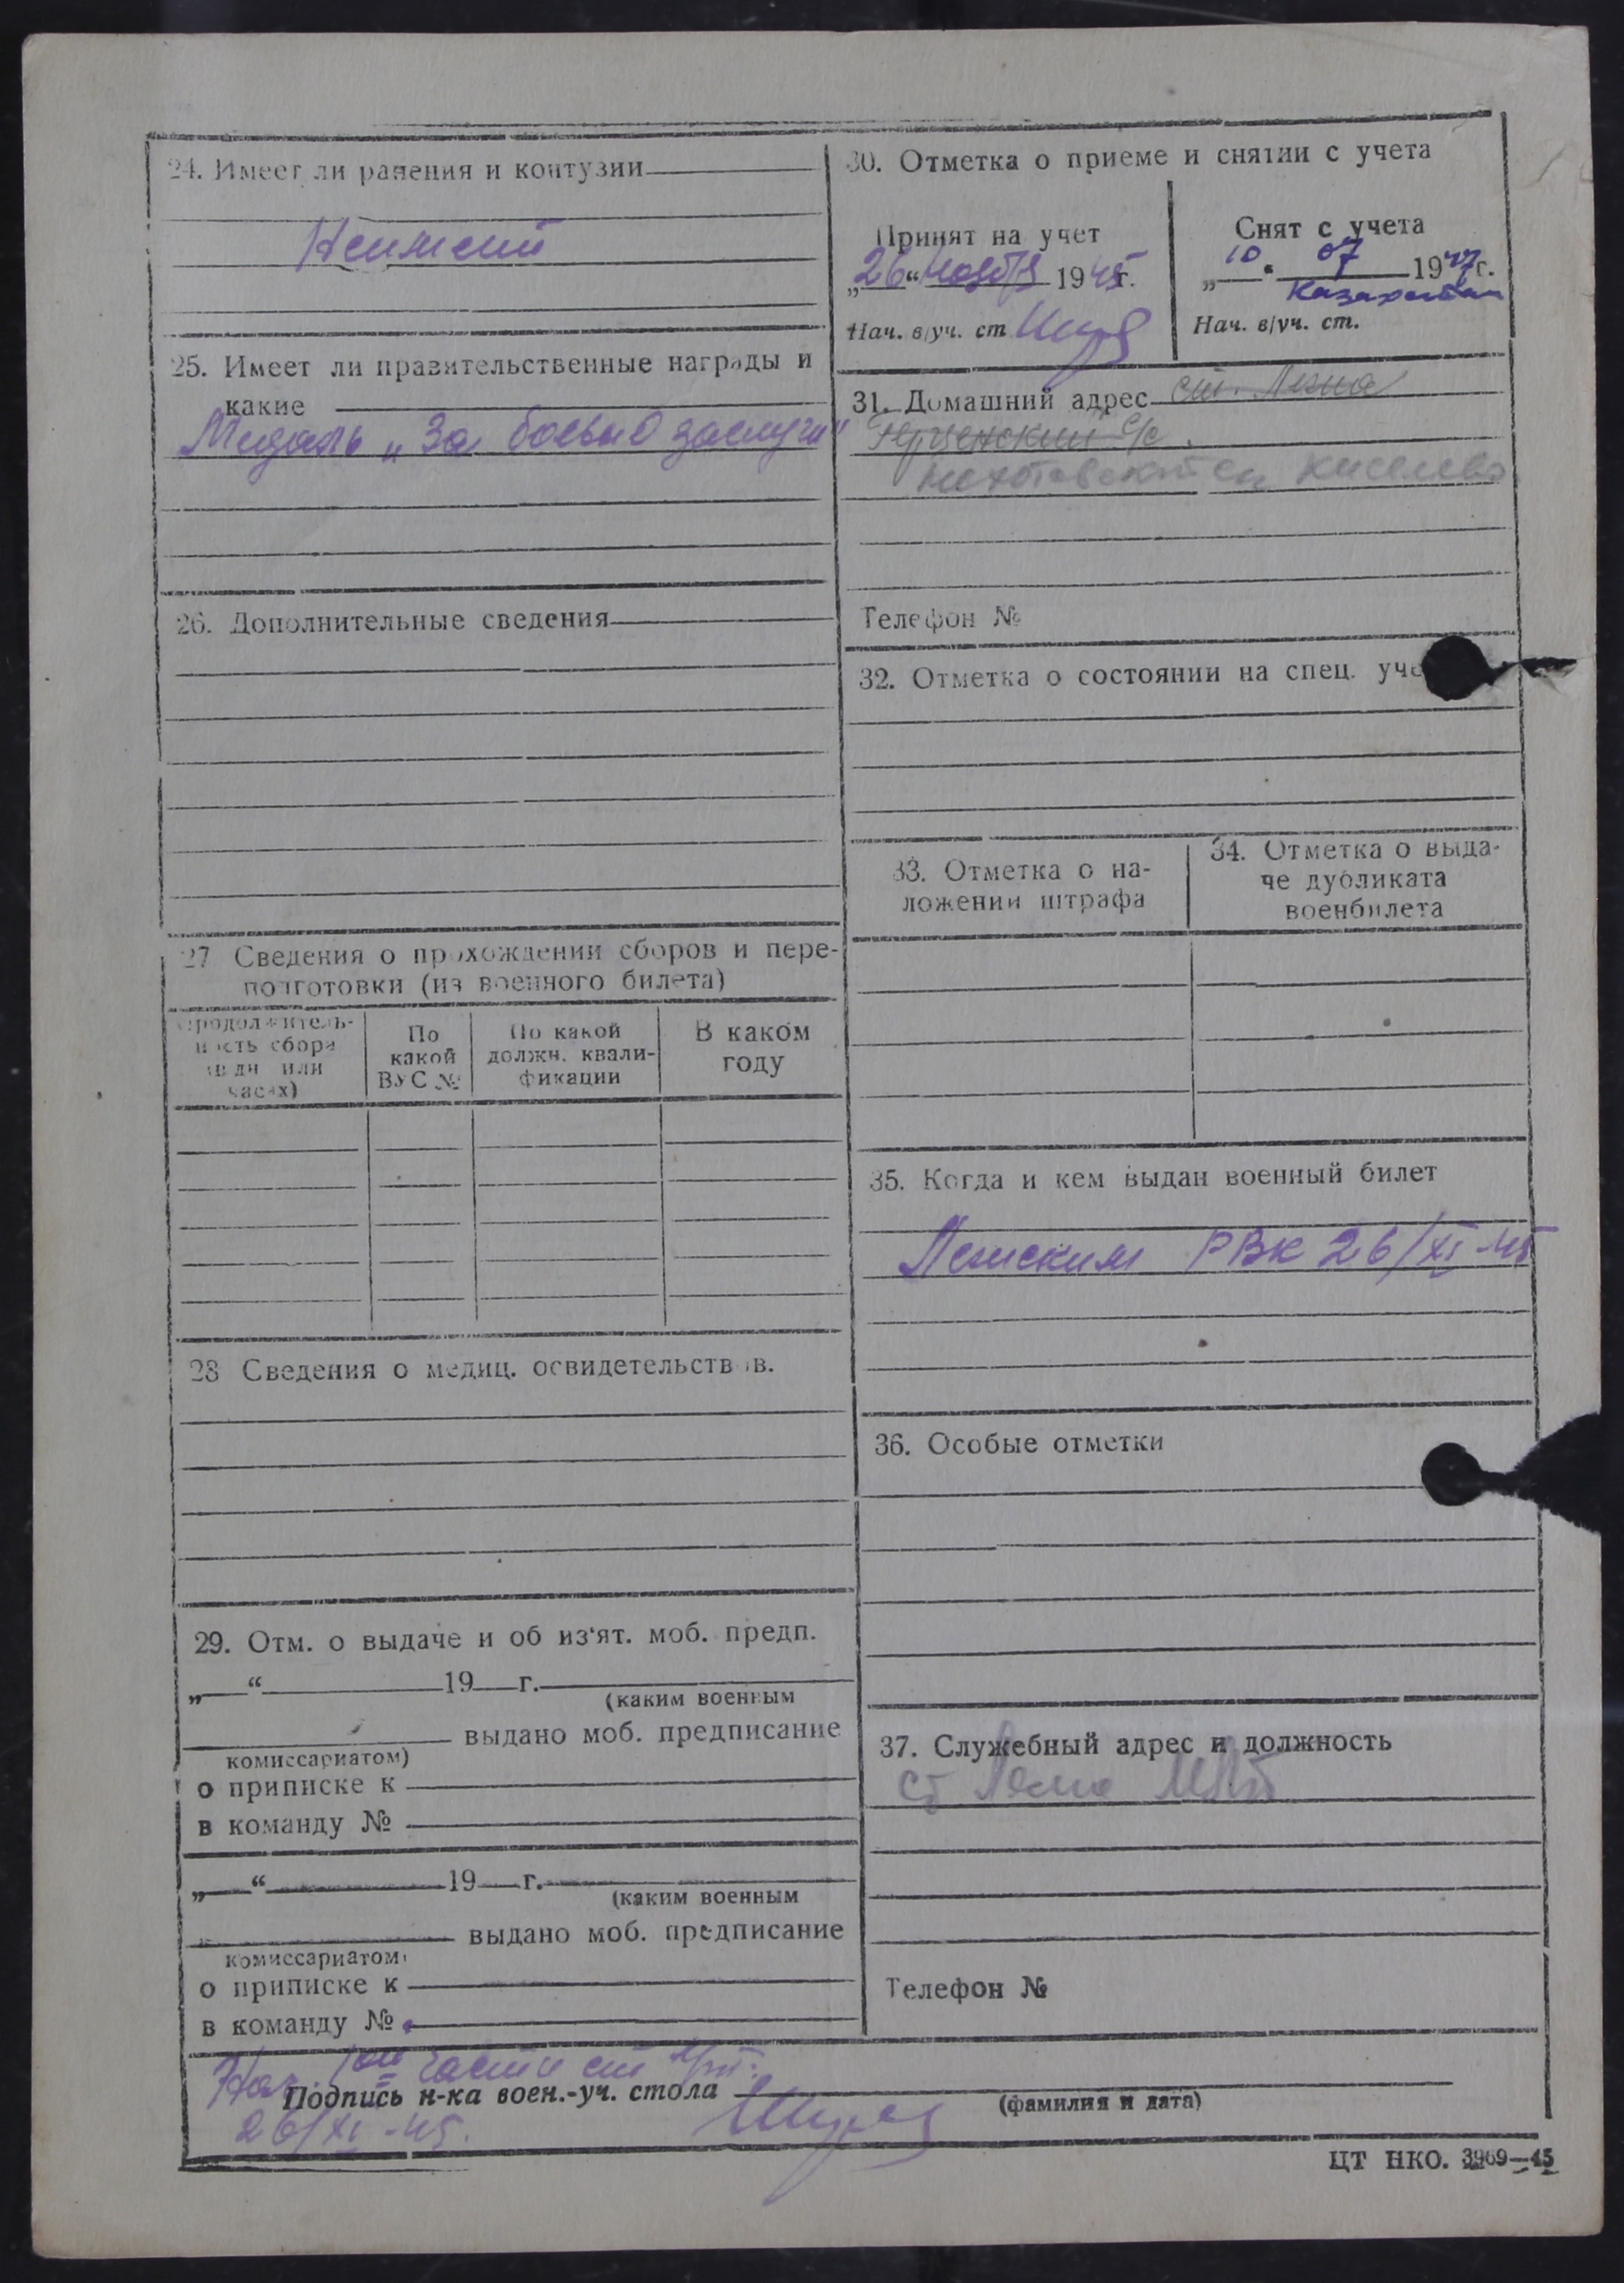 24. Имеет ли ранения и контузии
Неимеит
25. Имеет ли правительственные награды и
какие
Медаль „За боевые заслуги"
26. Дополнительные сведения
27 Сведения о прохождении сборов и пере-
подготовки (из военного билета)
Продолжитель-
ность сбора
(в дн. или
часах)
По
какой
ВУС №
По какой
должн. квали-
фикации
В каком
году
28 Сведения о медиц. освидетельствов.
29. Отм. о выдаче и об из'ят. моб. предп.
„ “ 19 г.
(каким военным
выдано моб. предписание
комиссариатом)
о приписке к
в команду №
„ “ 19 г.
(каким военным
выдано моб. предписание
комиссариатом)
о приписке к
в команду №
30. Отметка о приеме и снятии с учета
Принят на учет
„26“ Ноября 1945 г.
Нач. в/уч. ст
Снят с учета
„10. 07 1947 г.
Казахстан
Нач. в/уч. ст.
31. Домашний адрес ст.
с/с
Киселева
Телефон №
32. Отметка о состоянии на спец. уче
33. Отметка о на-
ложении штрафа
34. Отметка о выда-
че дубликата
военбилета
35. Когда и кем выдан военный билет
РВК 26/XI-45
36. Особые отметки
37. Служебный адрес и должность
ст
Телефон №
Нач. 1ой части
Подпись н-ка воен.-уч. стола
(фамилия и дата)
26/XI-45.
ЦТ НКО. 3969—45